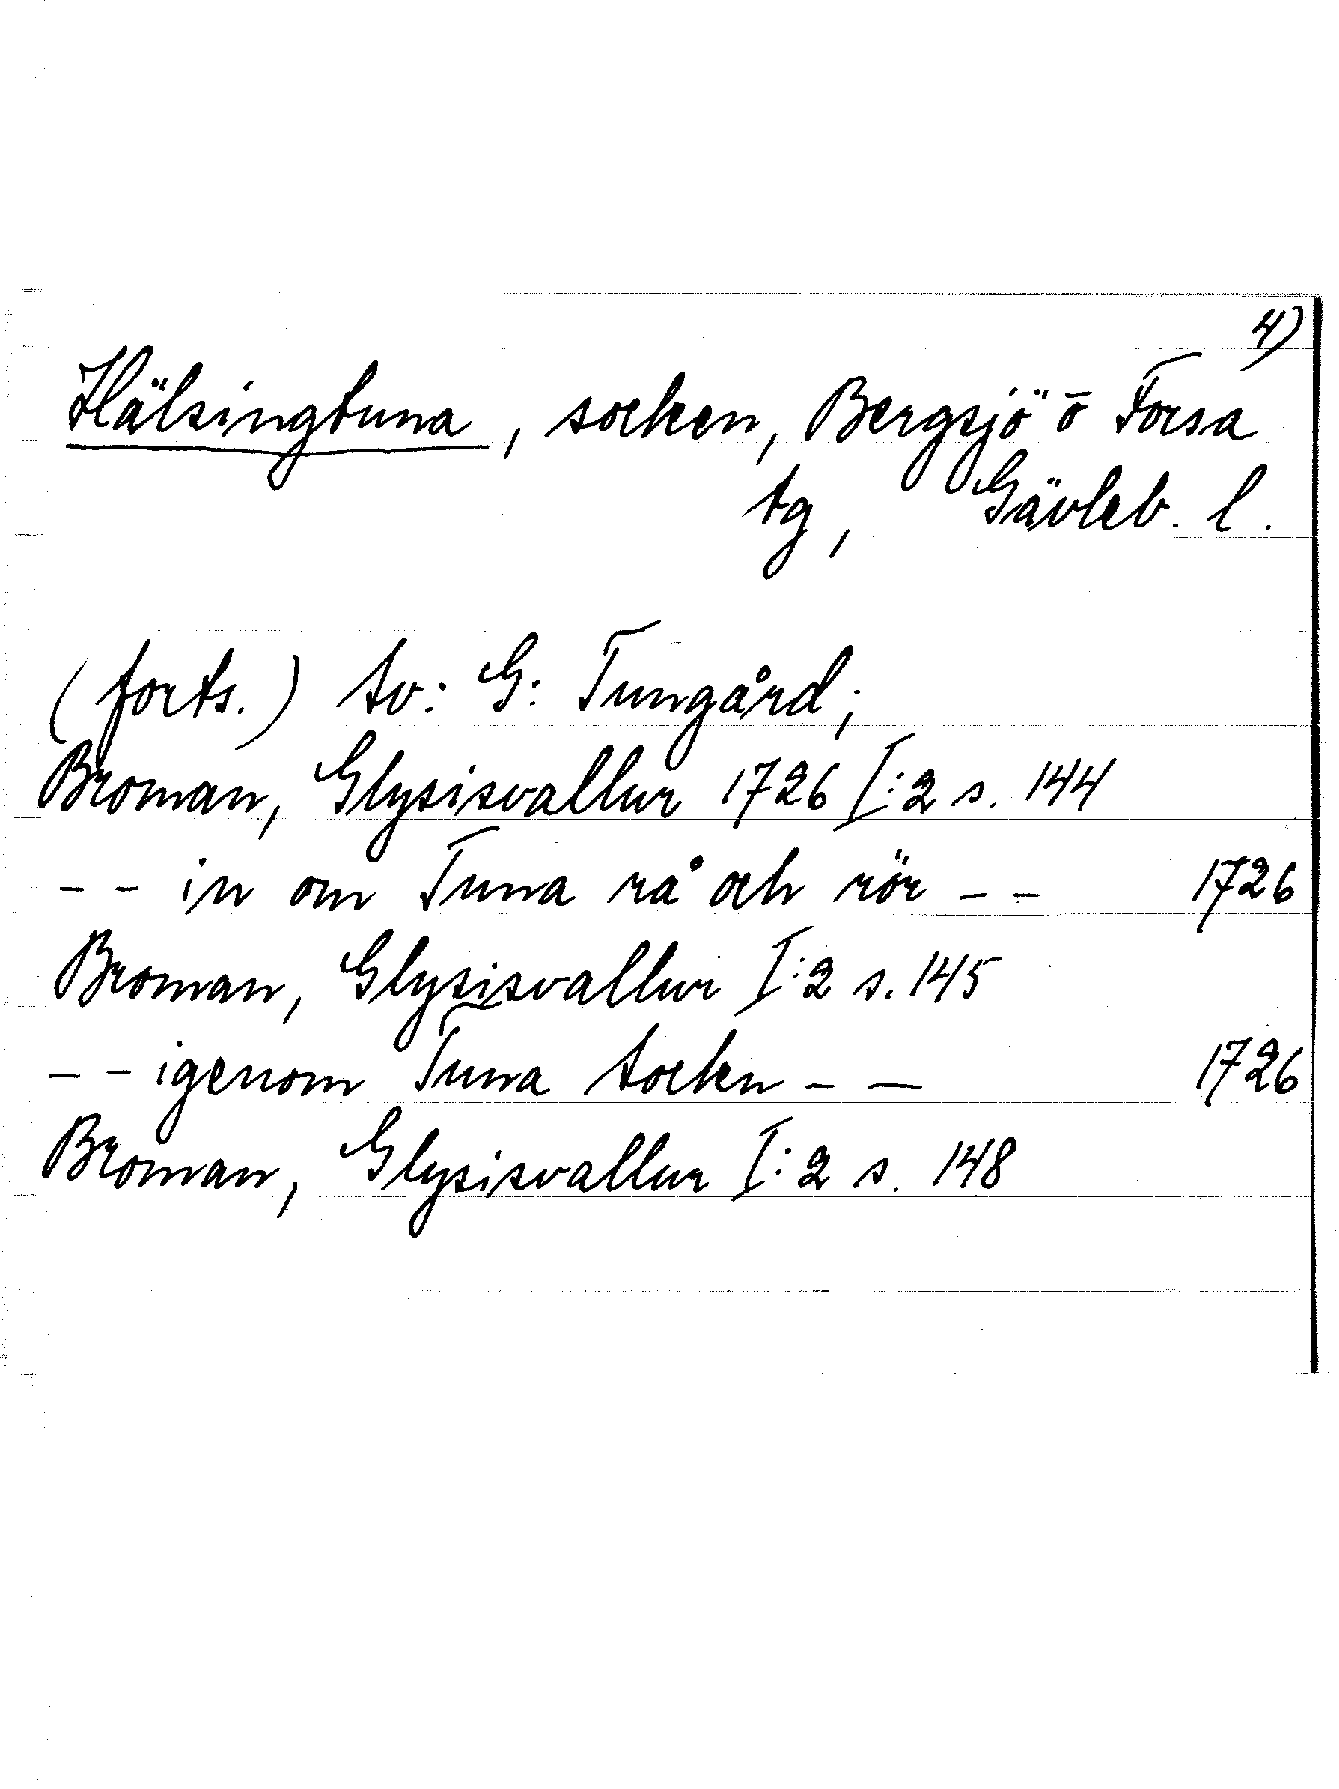 4)
Hälsingtuna, socken, Bergsjö o Forsa
tg, Gävleb. l.
(forts.) tv: G: Tungård;
Broman, Glysisvallur 1726 I:2 s. 144
-- in om Tuna rå och rör -- 1726
Broman, Glysisvallur I:2 s. 145
-- igenom Tuna Socken -- 1726
Broman, Glysisvallur I:2 s. 148